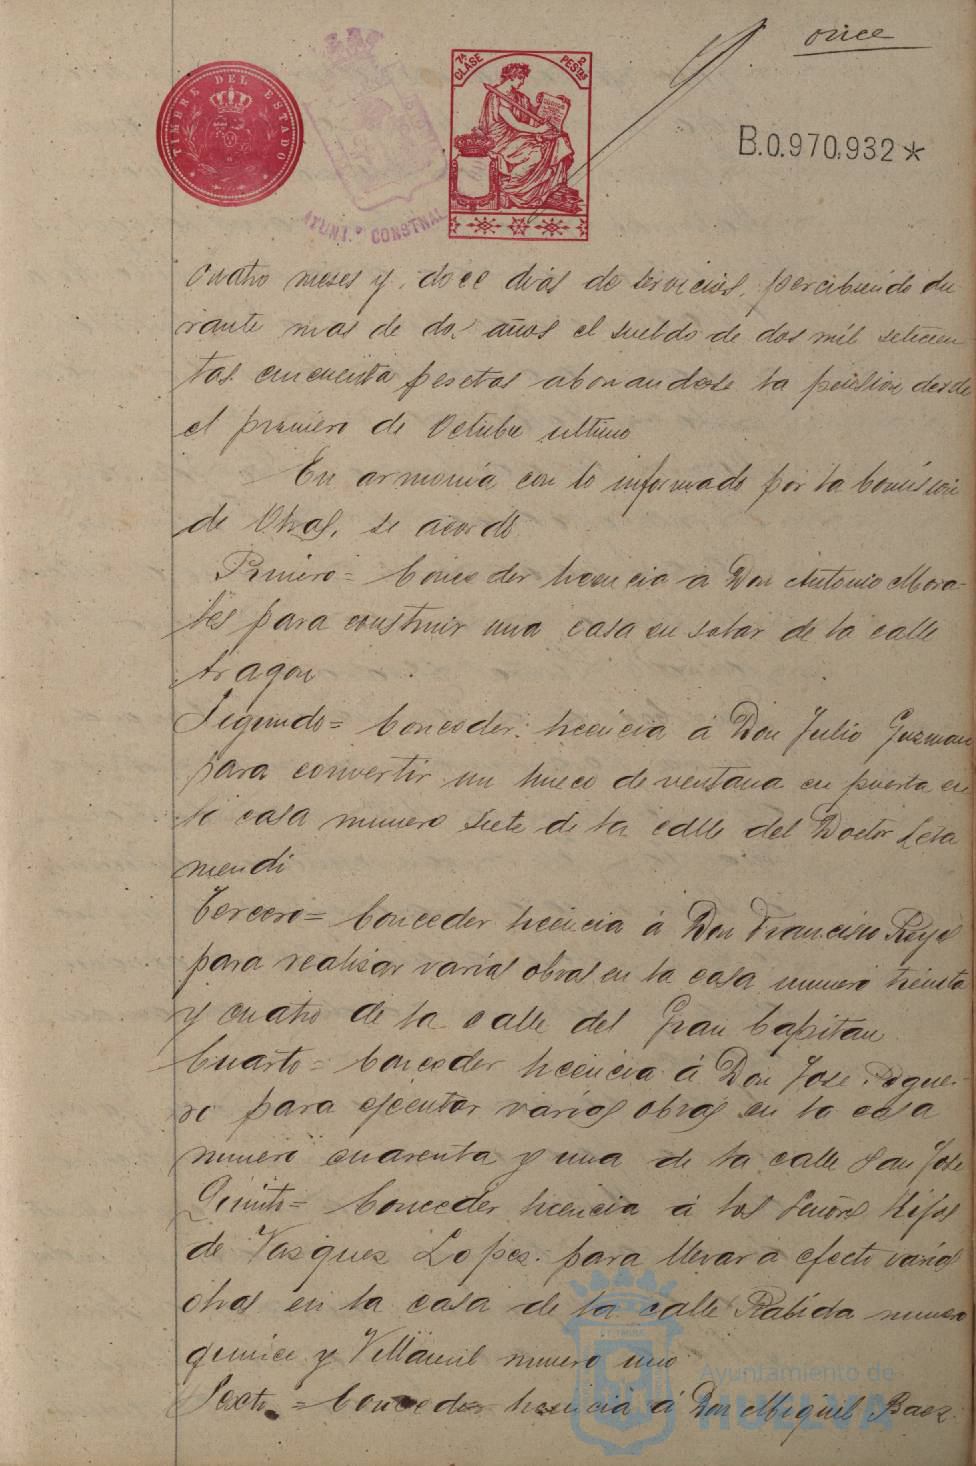 once
TIMBRE DEL ESTADO
7ª CLASE 2 PESTAS
B.0.970.932*
AYUNT.º CONSTNAL
cuatro meses y doce dias de servicios, percibiendo du
rante mas de dos años el sueldo de dos mil setecien
tas cincuenta pesetas abonandose la pension desde
el primero de Octubre ultimo
En armonía con lo informado por la Comision
de Obras, se acordó
Primero = Conceder licencia á Don Antonio Mora-
les para construir una casa en solar de la calle
Aragon
Segundo = Conceder licencia á Don Julio Guzman
para convertir un hueco de ventana en puerta en
la casa numero siete de la calle del Doctor Leta
mendi
Tercero = Conceder licencia á Don Francisco Reyes
para realizar varias obras en la casa numero treinta
y cuatro de la calle del Gran Capitan
Cuarto = Conceder licencia á Don Jose Noguer-
ro para ejecutar varias obras en la casa
numero cuarenta y una de la calle San Jose
Quinto = Conceder licencia á los Señores Hijos
de Vasquez Lopez para llevar a efecto varias
obras en la casa de la calle Rabida numero
quince y Villamil numero uno
Sexto = Conceder licencia á Don Miguel Baez
Ayuntamiento de
HUELVA